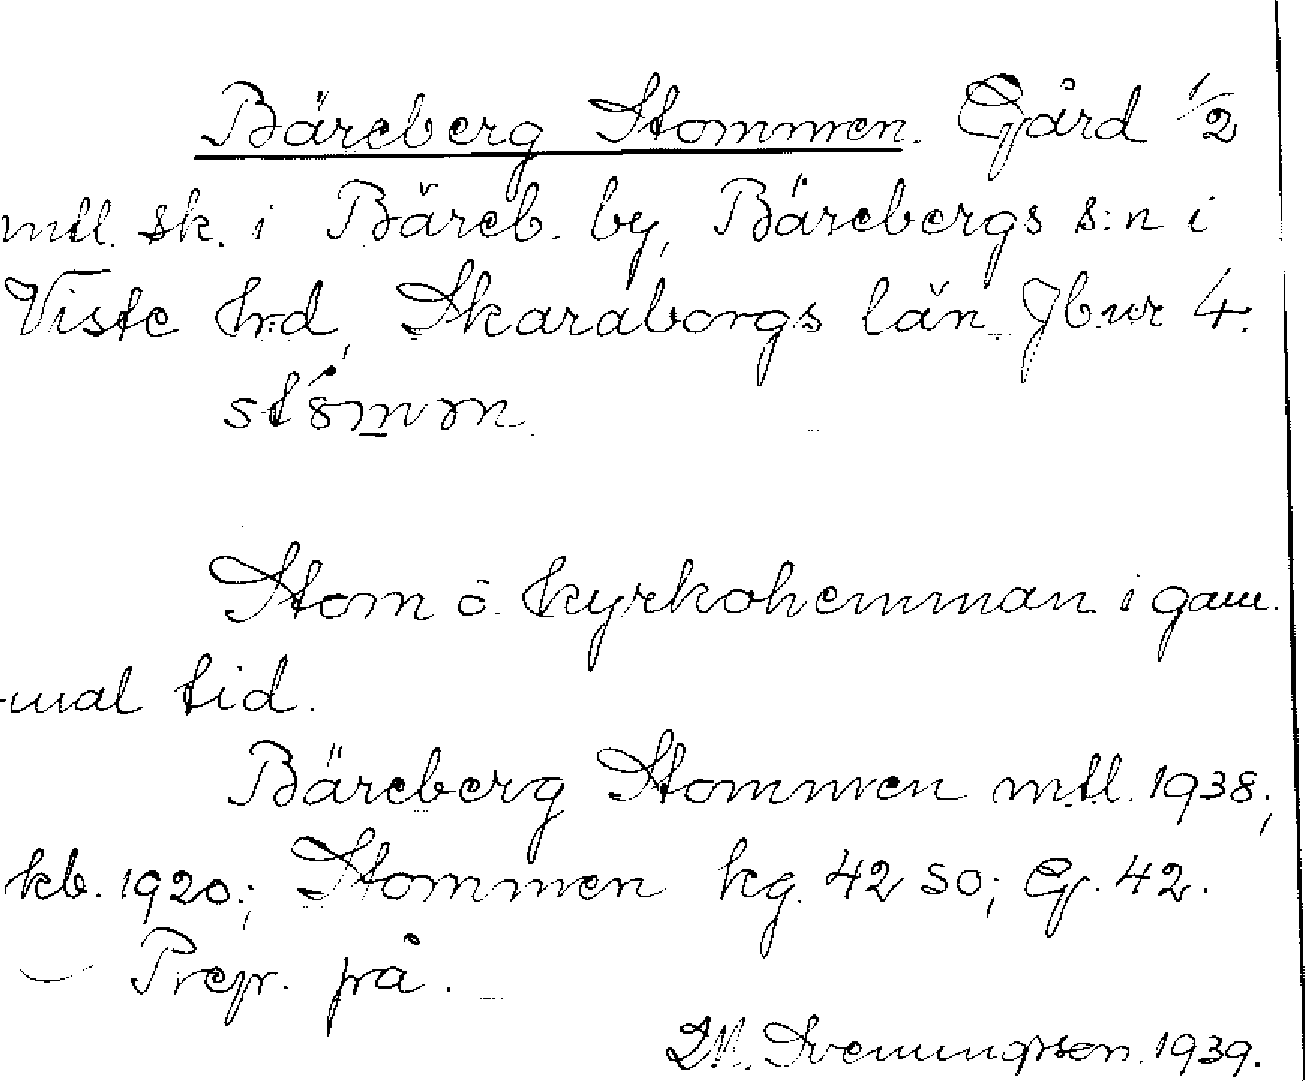 Bäreberg Stommen. Gård 1/2
mtl. sk. i Bäreb. by, Bärebergs s:n i
Viste hd, Skaraborgs län. Jb.nr 4.
Stom o. kyrkohemman i gam-
mal tid.
Bäreberg Stommen mtl. 1938;
kb. 1920; Stommen kg. 42 SO; G. 42.
– Prep. på.
Svenungsson. 1939.